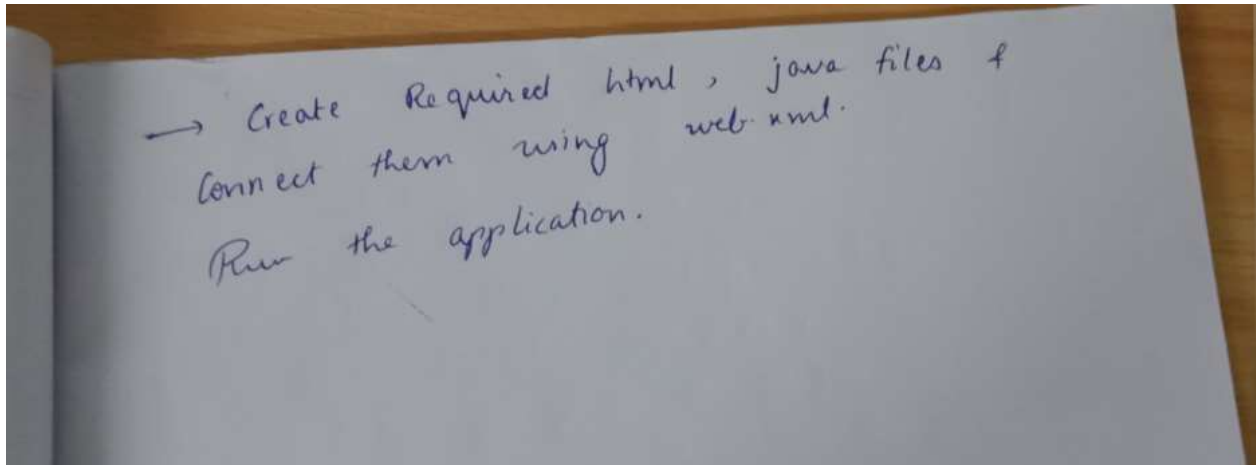 → Create Required html, java files &
Connect them using web.xml.
Run the application.